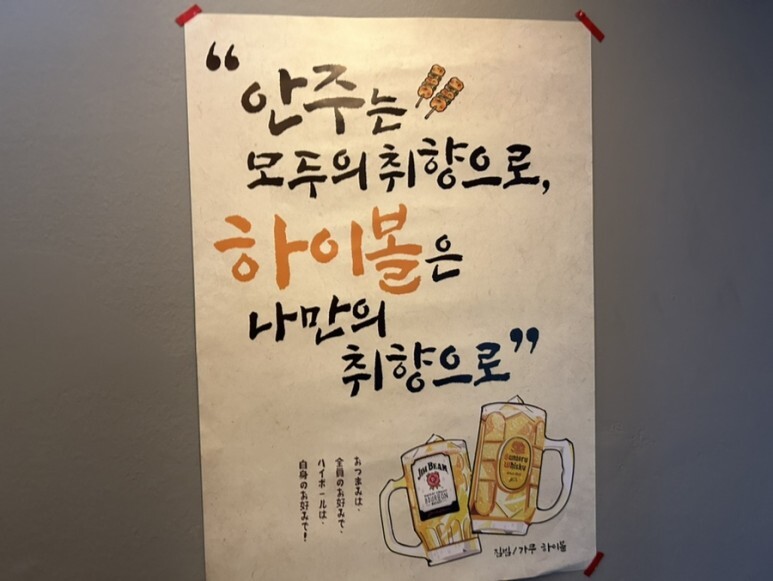 “안주는
모두의 취향으로,
하이볼은
나만의
취향으로”
おつまみは、
全員のお好みで、
ハイボールは、
自身のお好みで!
JIM BEAM
BOURBON
Suntory
Whisky
짐빔/가쿠 하이볼